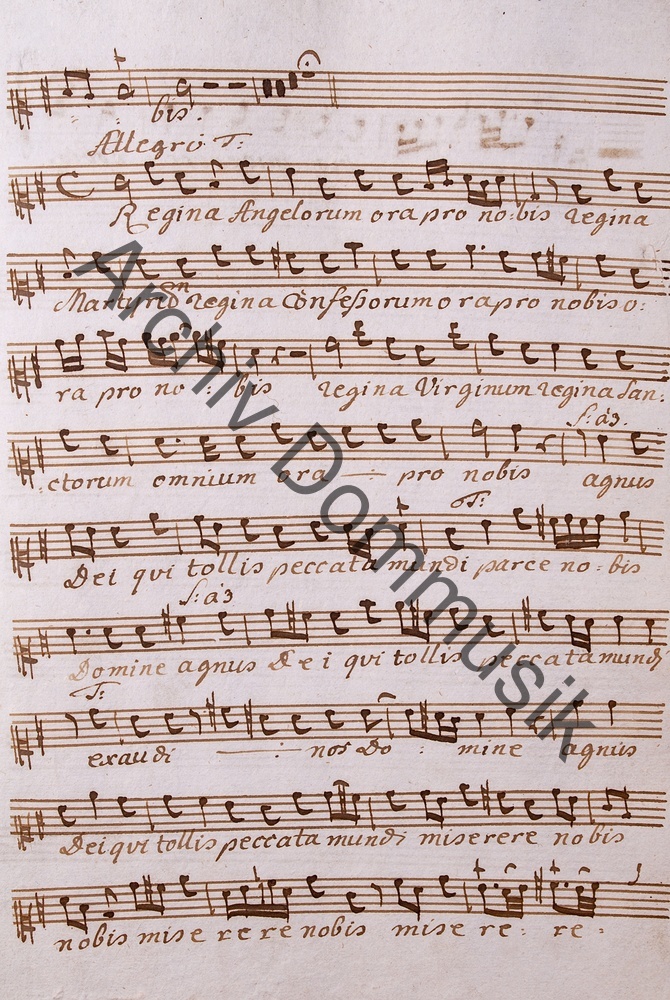 bis.
Allegro T:
Regina Angelorum ora pro no:bis regina
regina Confessorum ora pro nobis o:
ra pro no : bis regina Virginum regina San:
S: à3.
:ctorum omnium ora pro nobis agnus
T:
Dei qui tollis peccata mundi parce no: bis
S: à3
Domine agnus Dei qui tollis peccata mundi
T:
exaudi nos Do : mine agnus
Dei qui tollis peccata mundi miserere nobis
nobis mise re re nobis mise re: re:
Archiv Dommusik